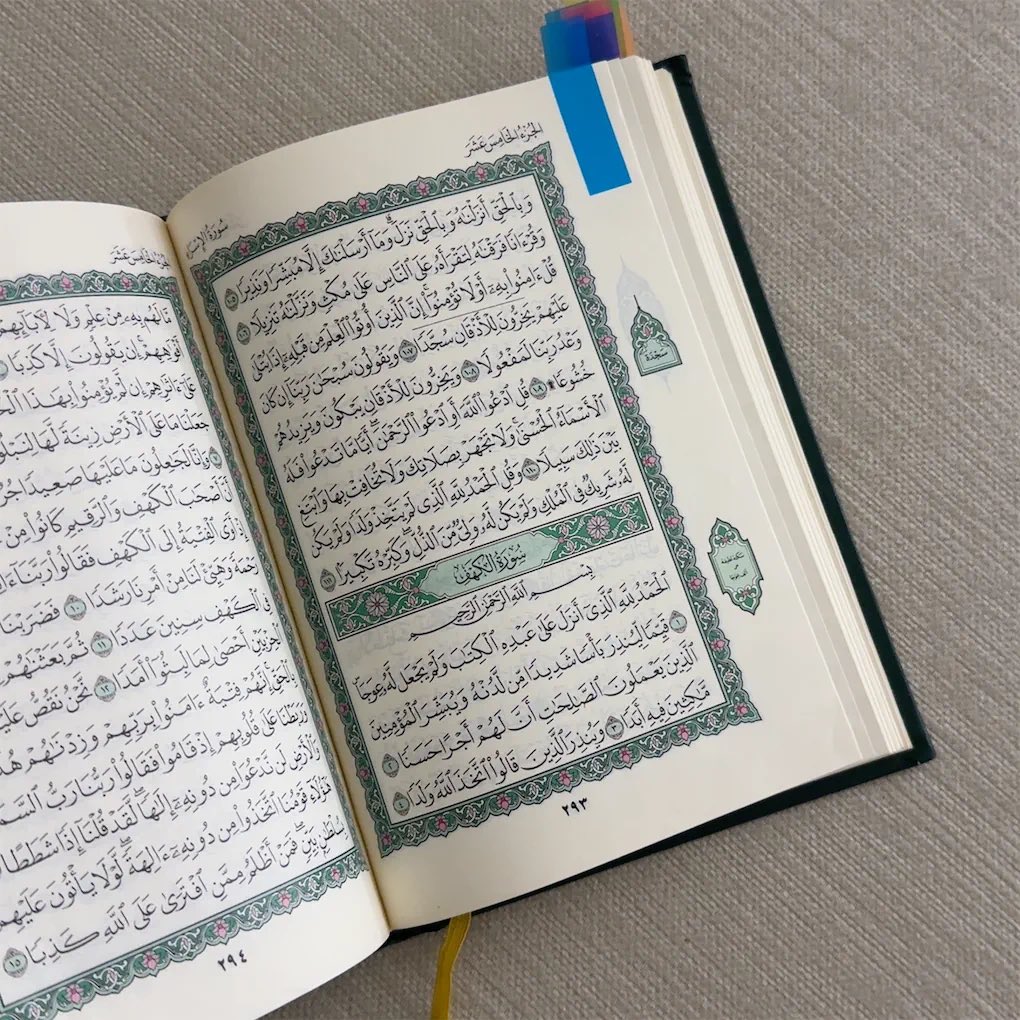 الجُزْءُ الخَامِسَ عَشَرَ
سُورَةُ الإِسْرَ
وَبِٱلْحَقِّ أَنزَلْنَٰهُ وَبِٱلْحَقِّ نَزَلَ ۗ وَمَآ أَرْسَلْنَٰكَ إِلَّا مُبَشِّرًا وَنَذِيرًا ١٠٥
وَقُرْءَانًا فَرَقْنَٰهُ لِتَقْرَأَهُۥ عَلَى ٱلنَّاسِ عَلَىٰ مُكْثٍ وَنَزَّلْنَٰهُ تَنزِيلًا ١٠٦
قُلْ ءَامِنُوا۟ بِهِۦٓ أَوْ لَا تُؤْمِنُوٓا۟ ۚ إِنَّ ٱلَّذِينَ أُوتُوا۟ ٱلْعِلْمَ مِن قَبْلِهِۦٓ إِذَا يُتْلَىٰ
عَلَيْهِمْ يَخِرُّونَ لِلْأَذْقَانِ سُجَّدًا ١٠٧ وَيَقُولُونَ سُبْحَٰنَ رَبِّنَآ إِن كَانَ
وَعْدُ رَبِّنَا لَمَفْعُولًا ١٠٨ وَيَخِرُّونَ لِلْأَذْقَانِ يَبْكُونَ وَيَزِيدُهُمْ
خُشُوعًا ۩ ١٠٩ قُلِ ٱدْعُوا۟ ٱللَّهَ أَوِ ٱدْعُوا۟ ٱلرَّحْمَٰنَ ۖ أَيًّا مَّا تَدْعُوا۟ فَلَهُ
ٱلْأَسْمَآءُ ٱلْحُسْنَىٰ ۚ وَلَا تَجْهَرْ بِصَلَاتِكَ وَلَا تُخَافِتْ بِهَا وَٱبْتَغِ
بَيْنَ ذَٰلِكَ سَبِيلًا ١١٠ وَقُلِ ٱلْحَمْدُ لِلَّهِ ٱلَّذِى لَمْ يَتَّخِذْ وَلَدًا وَلَمْ يَكُن
لَّهُۥ شَرِيكٌ فِى ٱلْمُلْكِ وَلَمْ يَكُن لَّهُۥ وَلِىٌّ مِّنَ ٱلذُّلِّ ۖ وَكَبِّرْهُ تَكْبِيرًۢا ١١١
سُورَةُ الكَهْفِ
بِسْمِ ٱللَّهِ ٱلرَّحْمَٰنِ ٱلرَّحِيمِ
ٱلْحَمْدُ لِلَّهِ ٱلَّذِىٓ أَنزَلَ عَلَىٰ عَبْدِهِ ٱلْكِتَٰبَ وَلَمْ يَجْعَل لَّهُۥ عِوَجَا ۜ ١
قَيِّمًا لِّيُنذِرَ بَأْسًا شَدِيدًا مِّن لَّدُنْهُ وَيُبَشِّرَ ٱلْمُؤْمِنِينَ
ٱلَّذِينَ يَعْمَلُونَ ٱلصَّٰلِحَٰتِ أَنَّ لَهُمْ أَجْرًا حَسَنًا ٢
مَّٰكِثِينَ فِيهِ أَبَدًا ٣ وَيُنذِرَ ٱلَّذِينَ قَالُوا۟ ٱتَّخَذَ ٱللَّهُ وَلَدًا ٤
٢٩٣
سَجْدَة
الجُزْءُ الخَامِسَ عَشَرَ
مَّا لَهُم بِهِۦ مِنْ عِلْمٍ وَلَا لِـَٔابَآئِهِمْ
أَفْوَٰهِهِمْ ۚ إِن يَقُولُونَ إِلَّا كَذِبًا
عَلَىٰٓ ءَاثَٰرِهِمْ إِن لَّمْ يُؤْمِنُوا۟ بِهَٰذَا ٱلْحَ
جَعَلْنَا مَا عَلَى ٱلْأَرْضِ زِينَةً لَّهَا لِنَبْلُوَ
وَإِنَّا لَجَٰعِلُونَ مَا عَلَيْهَا صَعِيدًا جُرُ
أَنَّ أَصْحَٰبَ ٱلْكَهْفِ وَٱلرَّقِيمِ كَانُوا۟ مِنْ
أَوَى ٱلْفِتْيَةُ إِلَى ٱلْكَهْفِ فَقَالُوا۟ رَبَّنَآ ءَ
رَحْمَةً وَهَيِّئْ لَنَا مِنْ أَمْرِنَا رَشَدًا ١٠ فَضَرَبْنَا
فِى ٱلْكَهْفِ سِنِينَ عَدَدًا ١١ ثُمَّ بَعَثْنَٰهُمْ
ٱلْحِزْبَيْنِ أَحْصَىٰ لِمَا لَبِثُوٓا۟ أَمَدًا ١٢ نَّحْنُ نَقُصُّ عَلَيْ
بِٱلْحَقِّ ۚ إِنَّهُمْ فِتْيَةٌ ءَامَنُوا۟ بِرَبِّهِمْ وَزِدْنَٰهُمْ هُدً
وَرَبَطْنَا عَلَىٰ قُلُوبِهِمْ إِذْ قَامُوا۟ فَقَالُوا۟ رَبُّنَا رَبُّ ٱلسَّمَ
وَٱلْأَرْضِ لَن نَّدْعُوَا۟ مِن دُونِهِۦٓ إِلَٰهًا ۖ لَّقَدْ قُلْنَآ إِذًا شَطَطًا
هَٰٓؤُلَآءِ قَوْمُنَا ٱتَّخَذُوا۟ مِن دُونِهِۦٓ ءَالِهَةً ۖ لَّوْلَا يَأْتُونَ عَلَيْهِم
بِسُلْطَٰنٍۭ بَيِّنٍ ۖ فَمَنْ أَظْلَمُ مِمَّنِ ٱفْتَرَىٰ عَلَى ٱللَّهِ كَذِبًا ١٥
٢٩٤